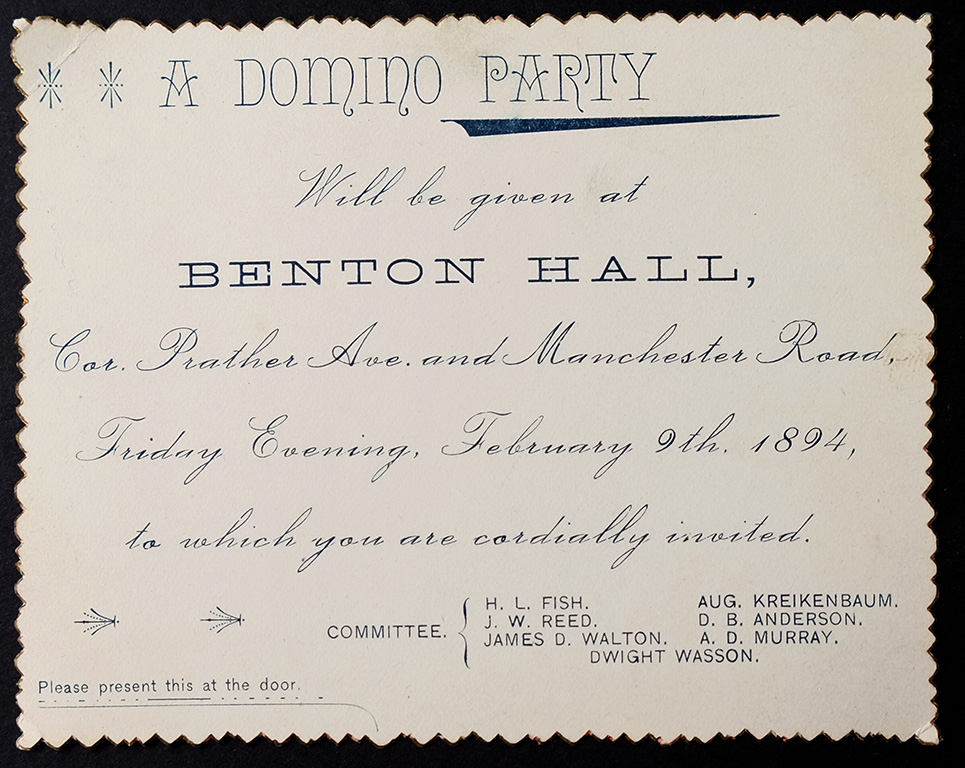 A DOMINO PARTY
Will be given at
BENTON HALL,
Cor. Prather Ave. and Manchester Road,
Friday Evening, February 9th. 1894,
to which you are cordially invited.
COMMITTEE.
H. L. FISH. AUG. KREIKENBAUM.
J. W. REED. D. B. ANDERSON.
JAMES D. WALTON. A. D. MURRAY.
DWIGHT WASSON.
Please present this at the door.